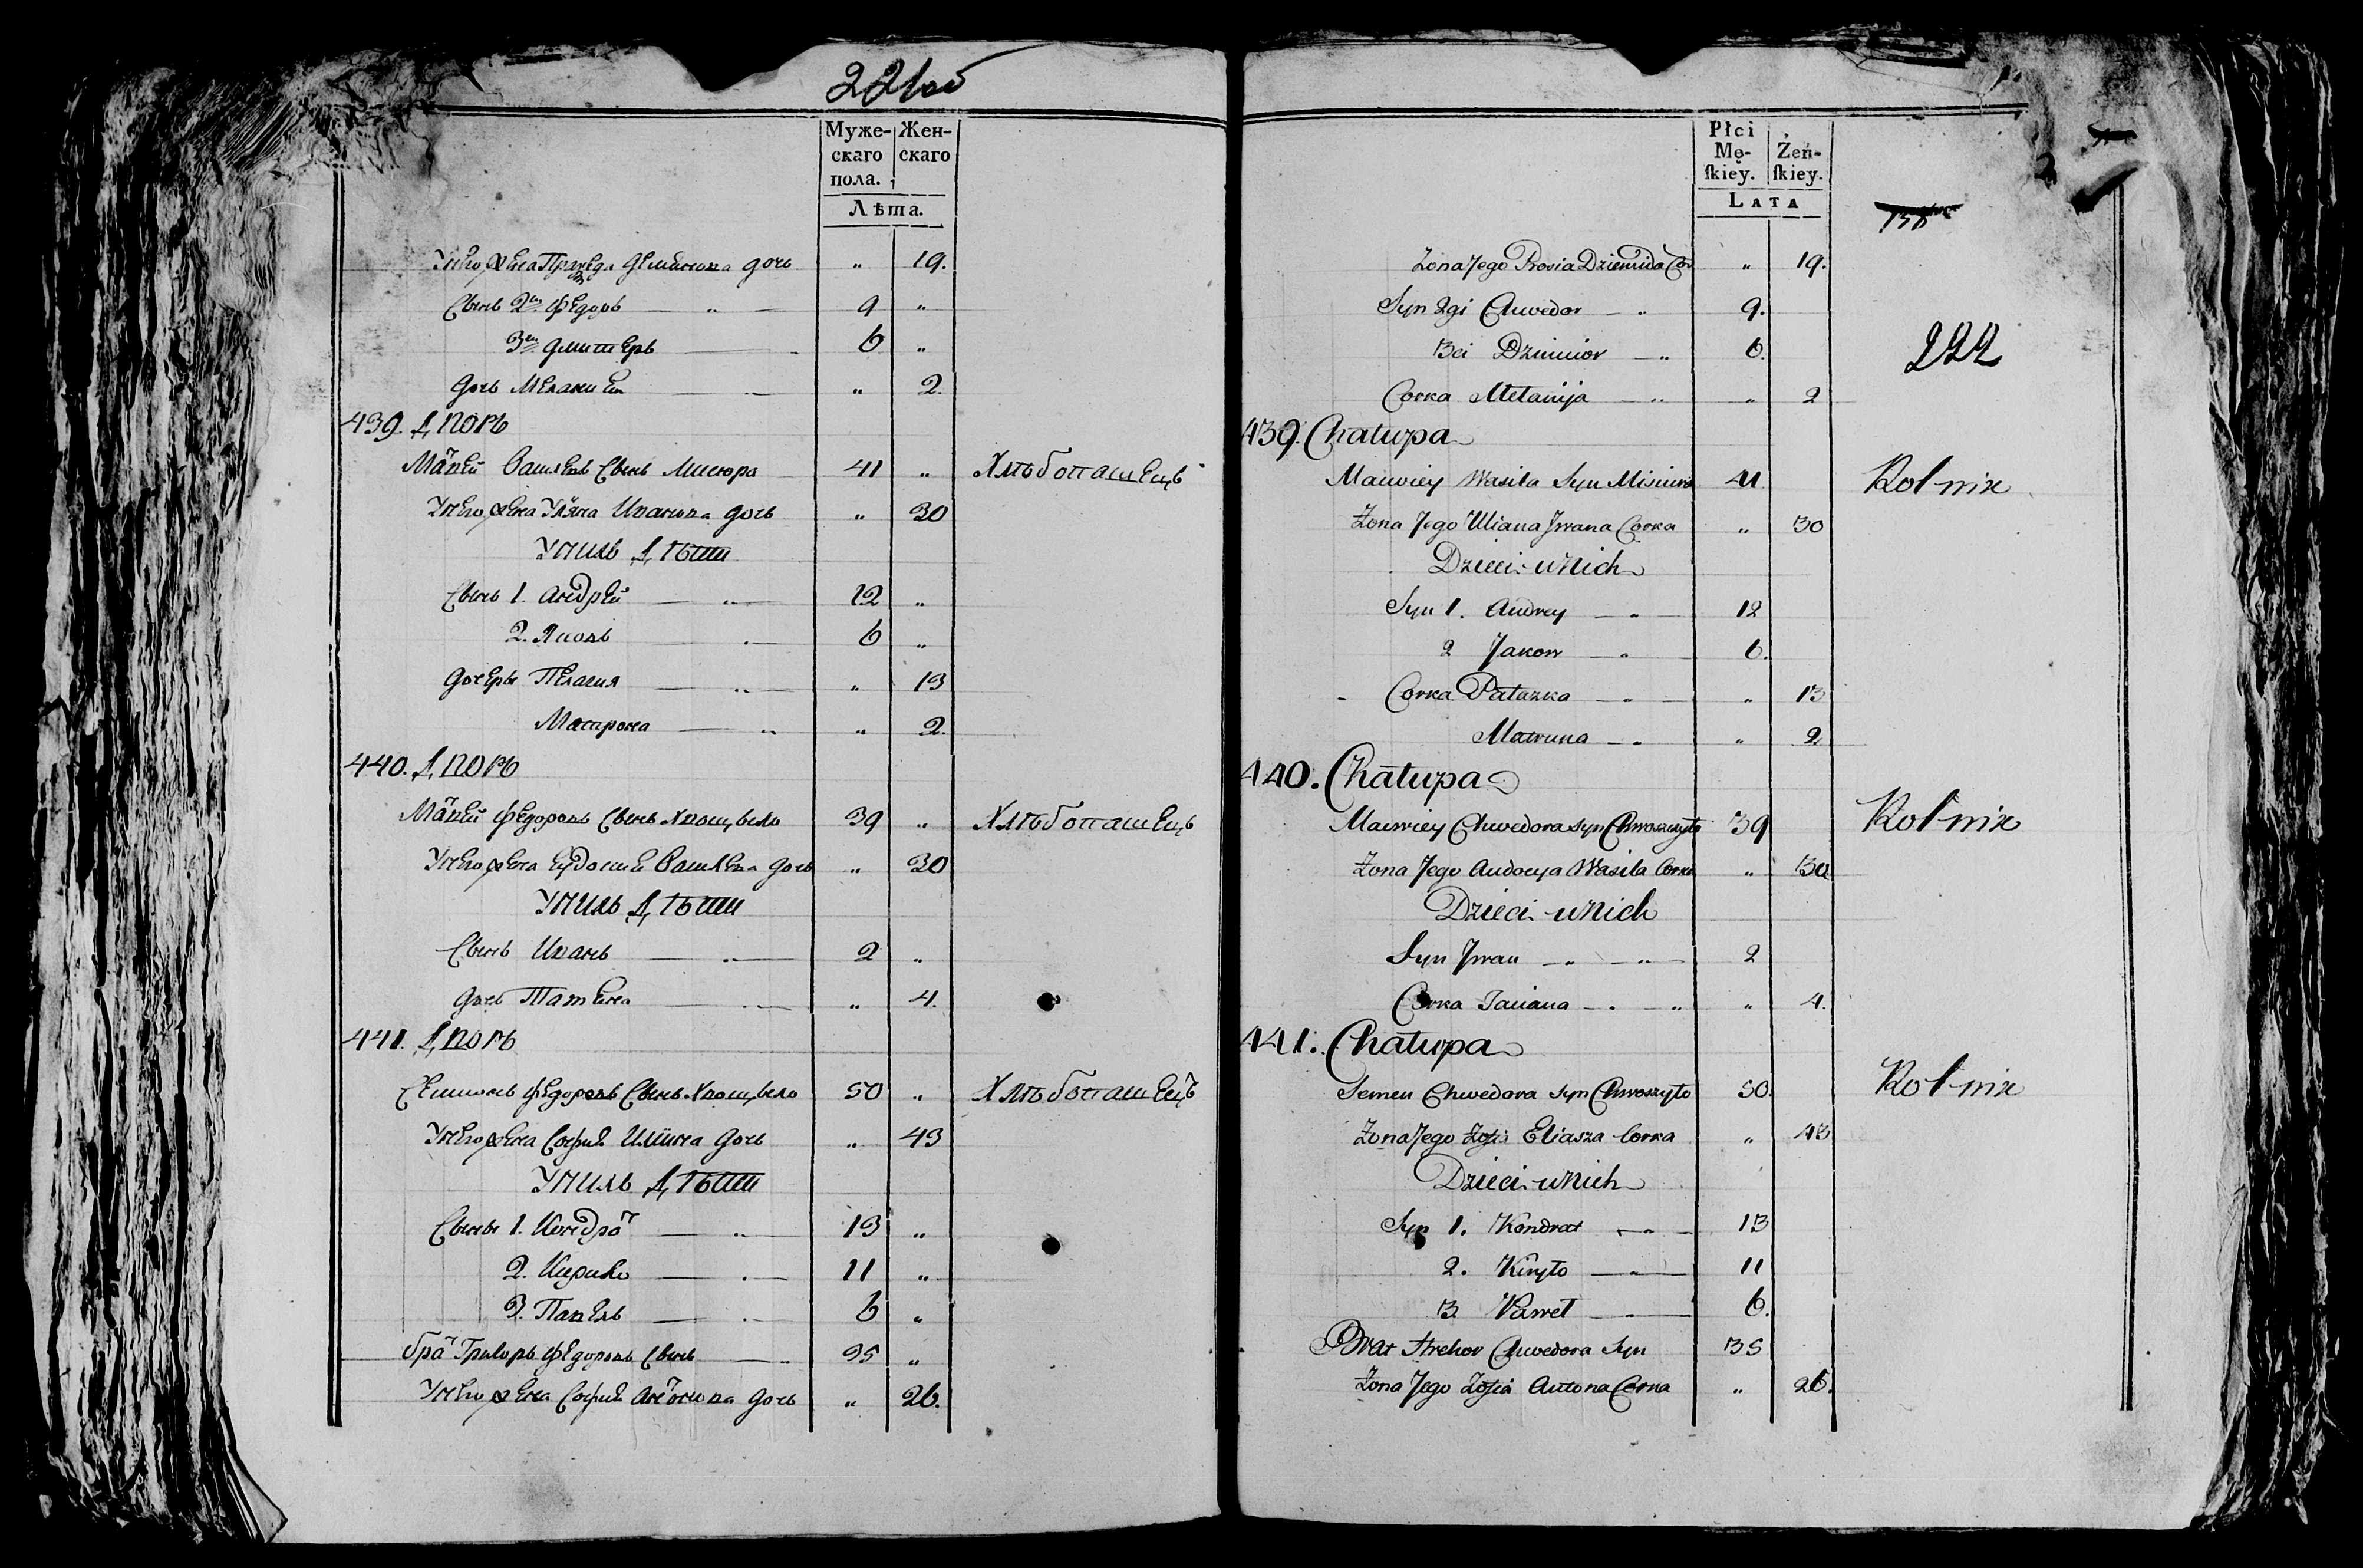 221об
Муже- Жен-
скаго скаго
пола.
Лѣта.
У него жена Праседа Демидова дочь " 19.
Сынъ 2й Федоръ — " — 9 "
3й Дмитеръ — 6 "
Дочь Мелания — " 2.
439. Дворъ
Матвей Васильевъ Сынъ Мисюра 41 " Хлѣбопашецъ
У него жена Уляна Иванова дочь " 30
У нихъ Дѣти
Сынъ 1. Андрей — " — 12 "
2. Яковъ — 6 "
Дочеры Пелагия — " — " 13
Матрона — " " 2.
440. Дворъ
Матвей Федоровъ Сынъ Хвощыло 39 " Хлѣбопашецъ
У него жена Евдокия Васильева дочь " 30
У нихъ Дѣти
Сынъ Иванъ — " — 2 "
Дочь Татьяна — " 4.
441. Дворъ
Семионъ Федоровъ Сынъ Хвощыло 50 " Хлѣбопашецъ
У него жена София Илiина дочь " 43
У нихъ Дѣти
Сыны 1. Кондрат — " — 13 "
2. Кирило — 11 "
3. Павелъ — 6 "
Брат Григоръ Федоровъ Сынъ — 35 "
У него жена София Антонова дочь " 26.
Płci
Mę- Żeń-
skiey. skiey.
LATA
222
Żona Jego Prosia Dziemida Cor " 19.
Syn 2gi Chwedor — " 9.
3ci Dzmitor — " 6.
Corka Mełanija — " " 2
439. Chałupa
Maćwiey Wasila Syn Misiura 41 Rolnik
Żona Jego Uliana Jwana Corka " 30
Dzieci u Nich
Syn 1. Andrey — " 12
2 Jakow — " 6.
Corka Pałazka — " " 13
Matruna — " " 2
440. Chałupa
Maćwiey Chwedora Syn Chwoszczyło 39 Rolnik
Żona Jego Audocya Wasila Corka " 30
Dzieci u Nich
Syn Jwan — " — " 2
Corka Taciana — " " 4.
441. Chałupa
Semen Chwedora Syn Chwoszyło 50. Rolnik
Żona Jego Zofia Eliasza Corka " 43
Dzieci u Nich
Syn 1. Kondrat — " 13
2. Kiryło — " 11
3 Paweł — " 6.
Brat Hrehor Chwedora Syn 35
Żona Jego Zofia Antona Corka " 26.